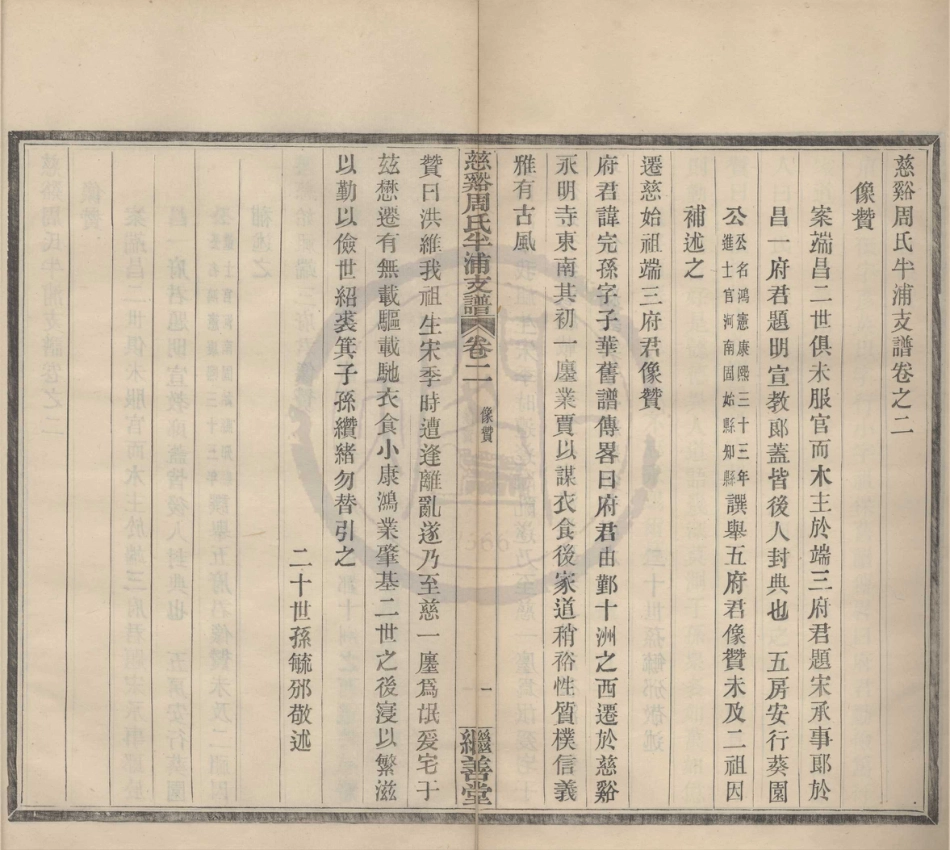 慈谿周氏半浦支譜卷之二
像贊
案端昌二世俱未服官而木主於端三府君題宋承事郞於
昌一府君題明宣教郞蓋皆後人封典也 五房安行葵園
公公名鴻憲康熙三十三年進士官河南固始縣知縣譔舉五府君像贊未及二祖因
補述之
遷慈始祖端三府君像贊
府君諱完孫字子華舊譜傳畧曰府君由鄞十洲之西遷於慈谿
永明寺東南其初一廛業賈以謀衣食後家道稍裕性質樸信義
雅有古風
慈谿周氏半浦支譜 卷二 像贊 一 繼善堂
贊曰洪維我祖生宋季時遭逢離亂遂乃至慈一廛爲氓爰宅于
玆懋遷有無載驅載馳衣食小康鴻業肇基二世之後寖以繁滋
以勤以儉世紹裘箕子孫纘緒勿替引之
二十世孫毓邠敬述